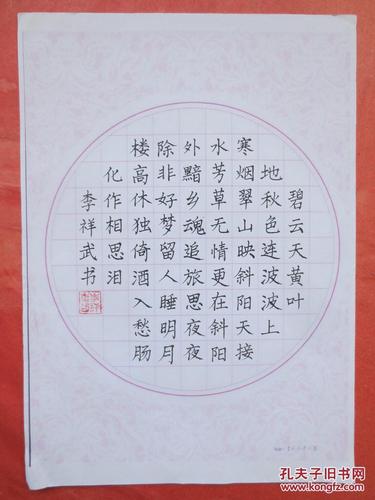 碧云天黄叶
地秋色连波波上
寒烟翠山映斜阳天接
水芳草无情更在斜阳
外黯乡魂追旅思夜夜
除非好梦留人睡明月
楼高休独倚酒入愁肠
化作相思泪
李祥武书
孔夫子旧书网